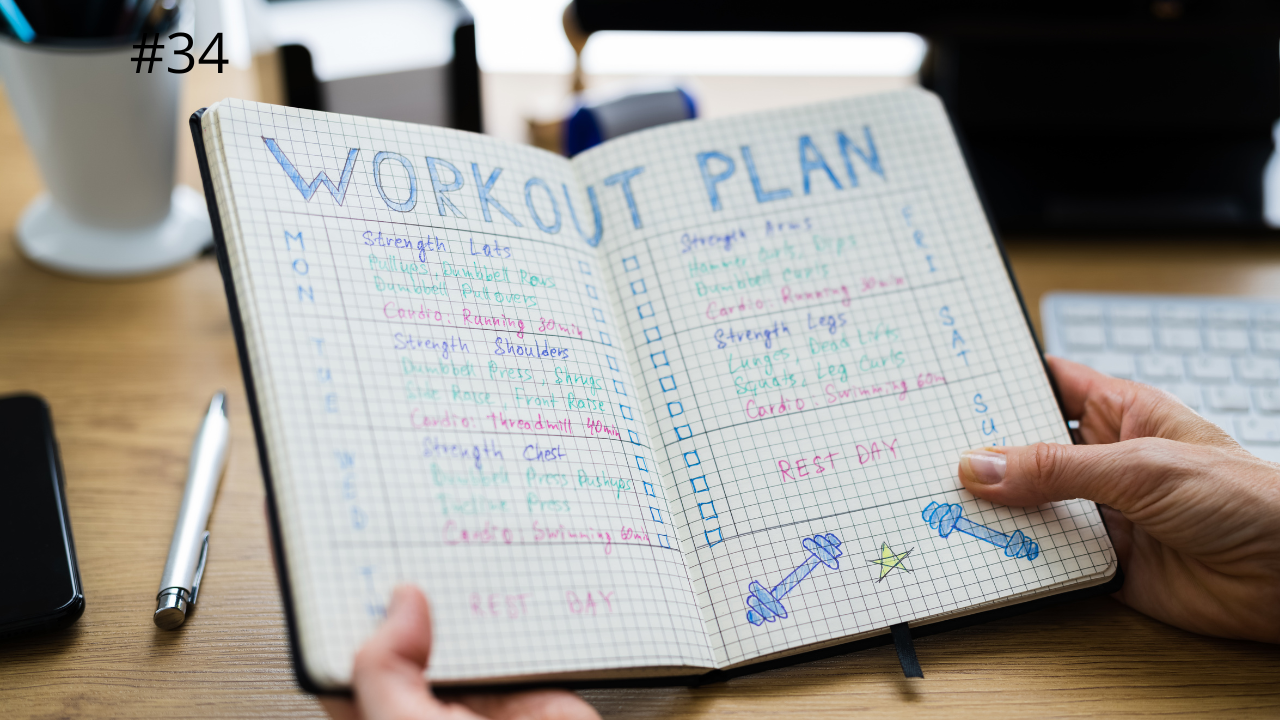 #34
WORKOUT PLAN
MON
Strength Lats
Pullups, Dumbbell Rows
Dumbbell Pullovers
Cardio: Running 30min
TUE
Strength Shoulders
Dumbbell Press, Shrugs
Side Raise, Front Raise
Cardio: Threadmill 40min
WED
Strength Chest
Dumbbell Press, Pushups
Incline Press
Cardio: Swimming 60min
REST DAY
FRI
Strength Arms
Hammer Curls, Dips
Dumbbell Curls
Cardio: Running 30min
SAT
Strength Legs
Lunges, Dead Lifts
Squats, Leg Curls
Cardio: Swimming 60m
SU
REST DAY